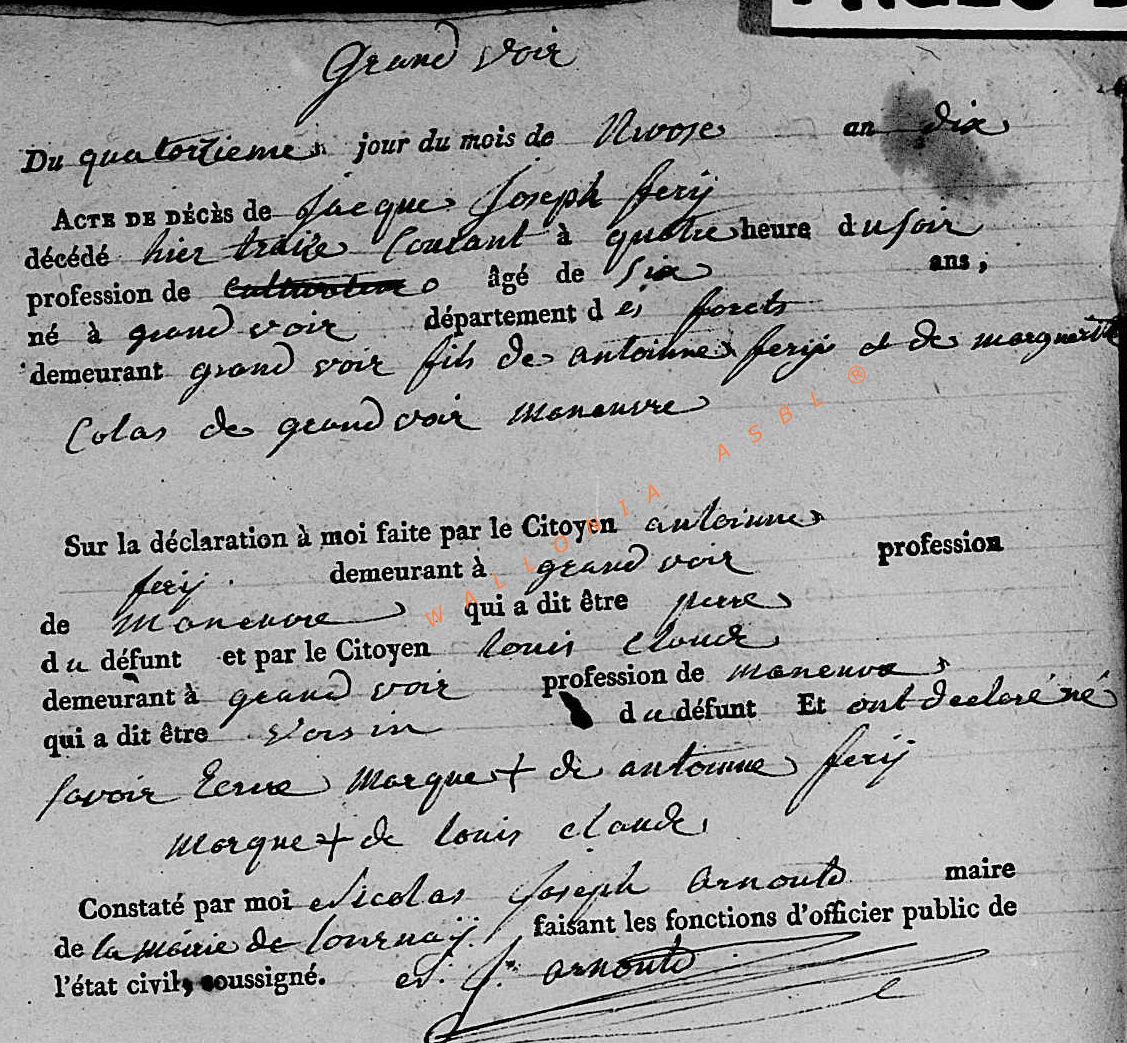 Grand voir
Du quatorzieme jour du mois de Nivose an dix
ACTE DE DÉCÈS de Jacque Joseph ferÿ
décédé hier traize Courant à quatre heure du soir
profession de cultivateur âgé de six ans,
né à grand voir département des forets
demeurant grand voir fils de antoinne ferÿ et de marguerite
Colas de grand voir maneuvre
Sur la déclaration à moi faite par le Citoyen antoinne
ferÿ demeurant à grand voir profession
de maneuvre qui a dit être pere
du défunt et par le Citoyen louis claude
demeurant à grand voir profession de maneuvre
qui a dit être voisin du défunt Et ont declaré né
savoir Ecrire marque + de antoinne ferÿ
marque + de louis claude
Constaté par moi Nicolas Joseph Arnould maire
de la mairie de tournaÿ faisant les fonctions d'officier public de
l'état civil, soussigné. N. J. arnould
WALLONIA ASBL ®